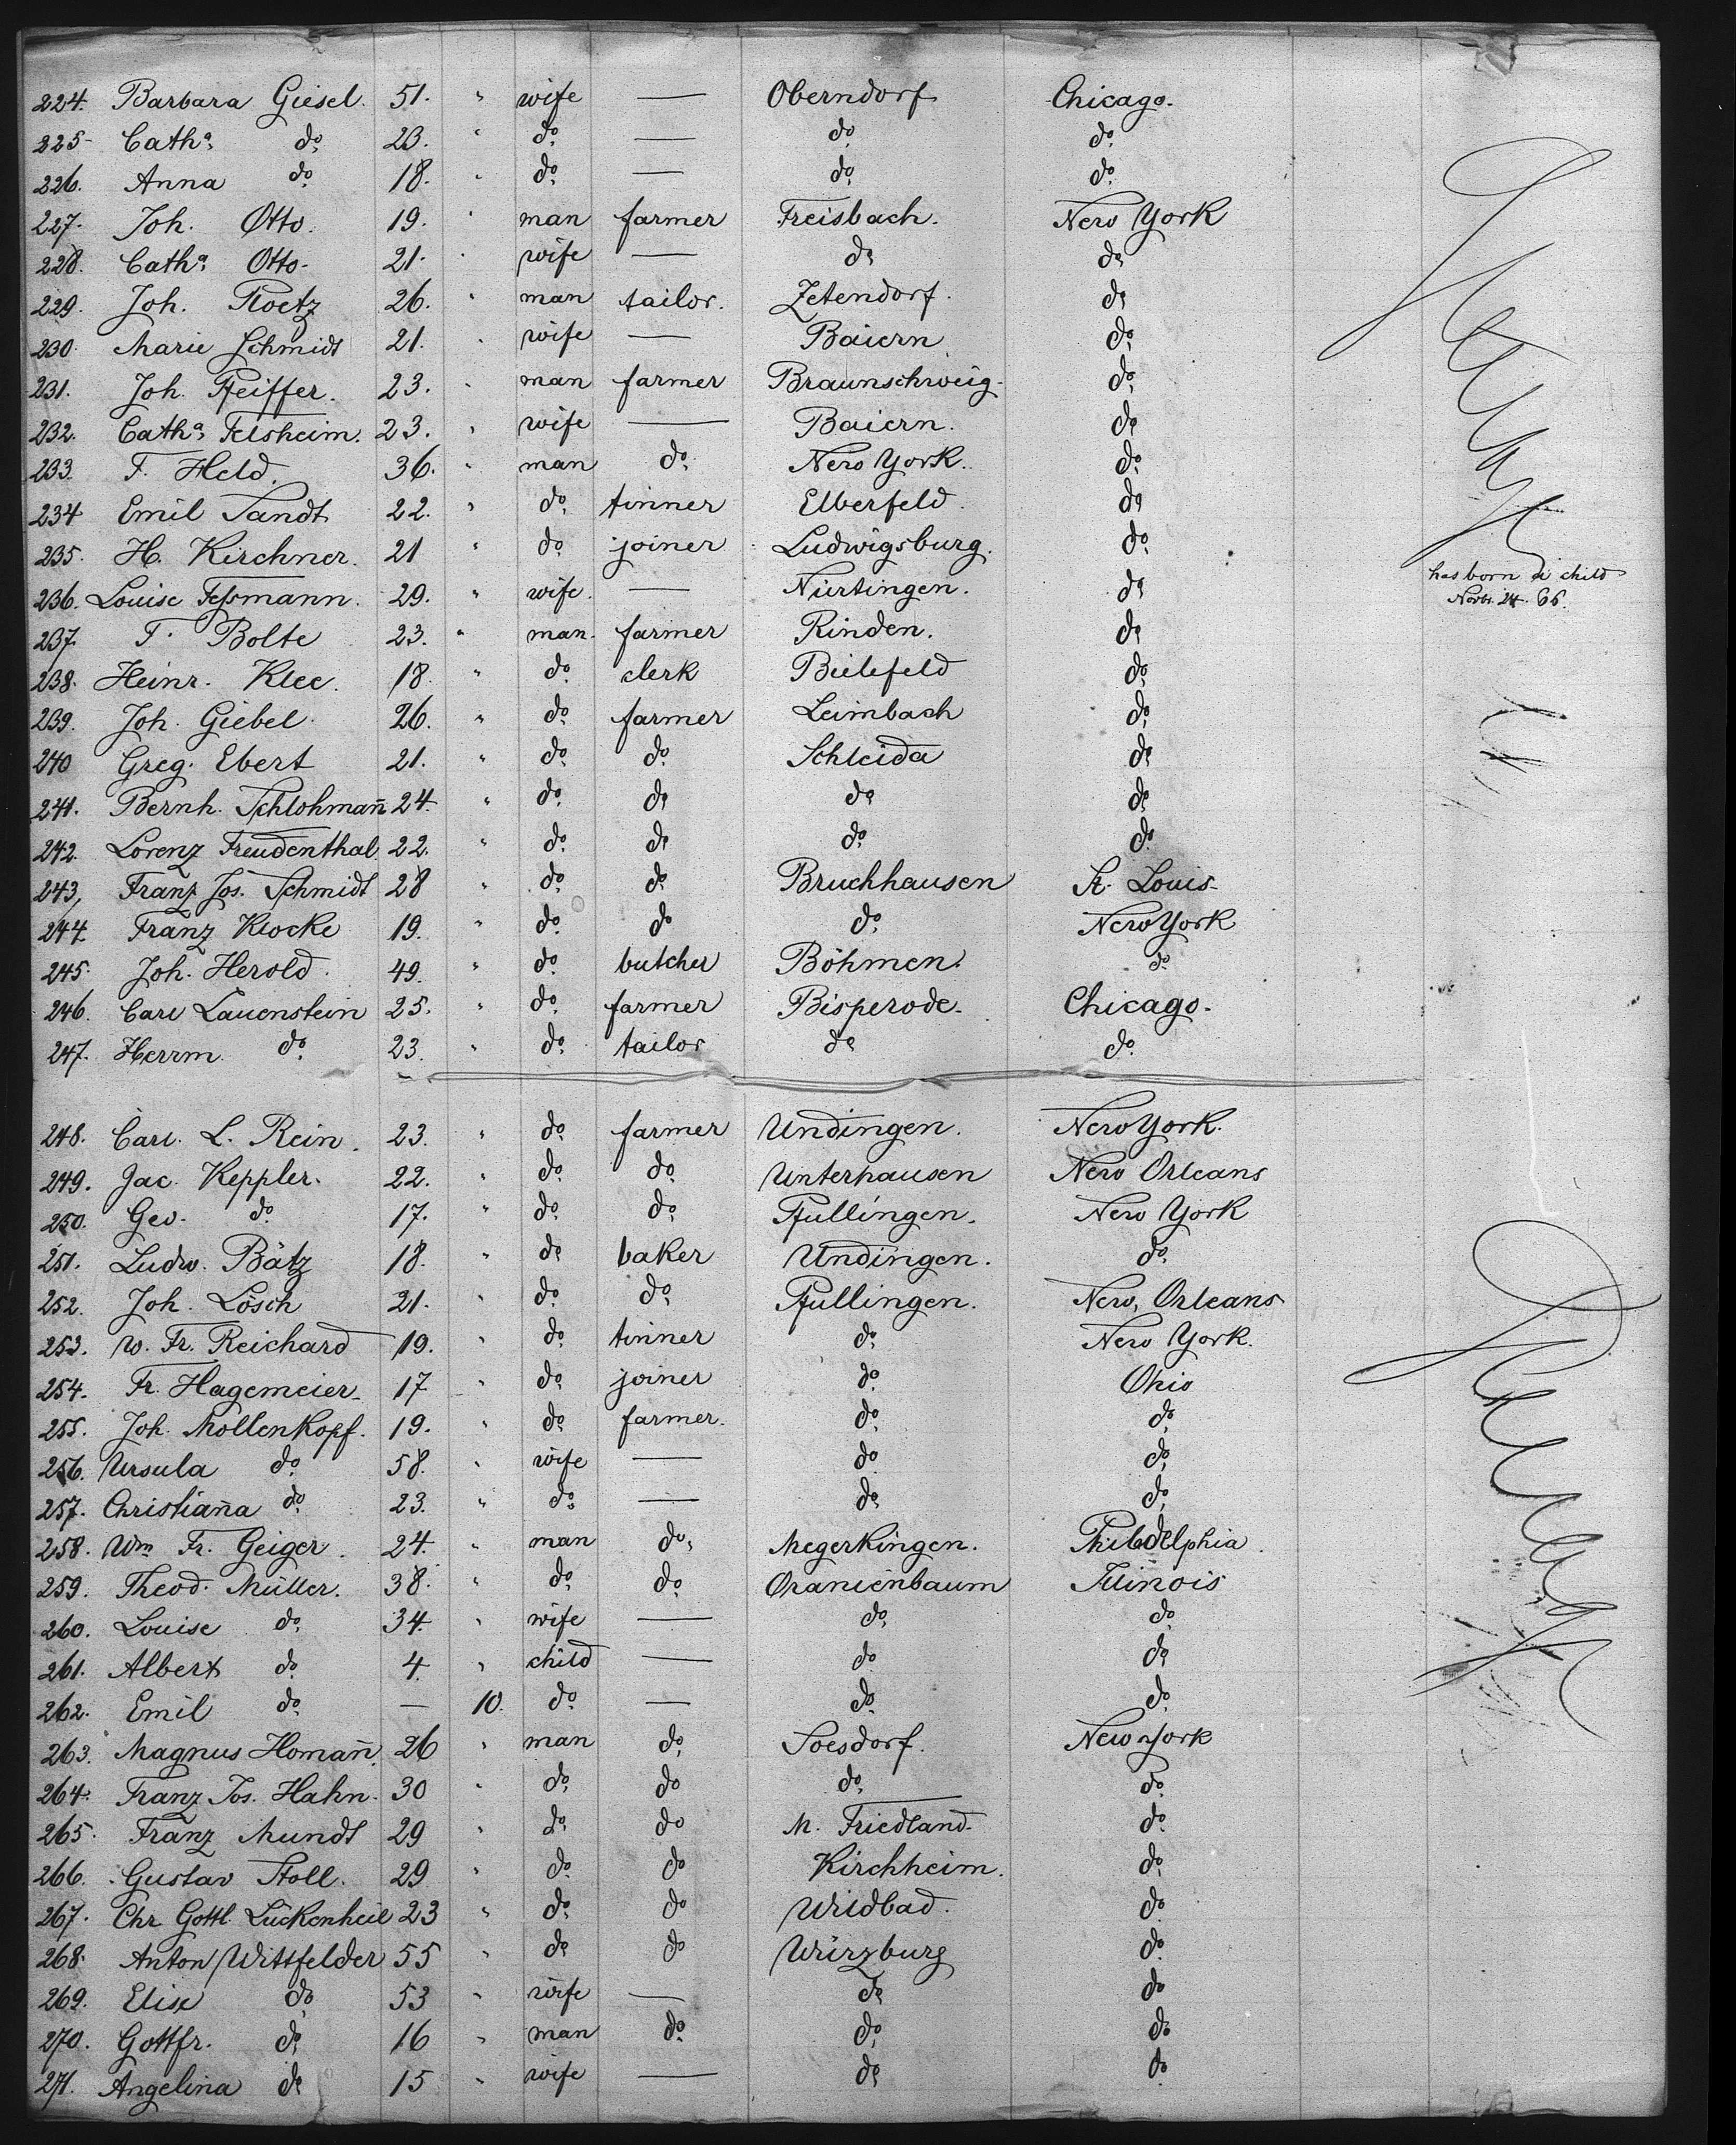 224. Barbara Giesel. 51. " wife — Oberndorf Chicago.
225- Catha. do. 23. " do. — do. do.
226. Anna do. 18. " do. — do. do.
227. Joh. Otto. 19. " man farmer Freisbach. New York
228. Catha. Otto- 21. " wife — do do
229. Joh. 26. " man tailor. Zetendorf. do
230. Marie Schmidt 21. " wife — Baiern do.
231. Joh. Pfeiffer. 23. " man farmer Braunschweig. do.
232. Catha. Felsheim. 23. " wife — Baiern. do
233. F. Held. 36. " man do. New York. do.
234 Emil Sandt 22. " do. tinner Elberfeld. do
235. H. Kirchner. 21 " do. joiner Ludwigsburg. do.
236. Louise Feßmann. 29. " wife. — Nürtingen. do has born a child
Novbr. 24. 66.
237. F. Bolte 23. " man. farmer Rinden. do
238. Heinr. Klee. 18. " do. clerk Bielefeld do.
239. Joh. Giebel. 26. " do. farmer Leimbach do.
240 Greg. Ebert 21. " do. do. Schleida do
241. Bernh. Schlohman̄ 24. " do. do do do
242. Lorenz Freudenthal. 22. " do. do do. do.
243, Franz Jos. Schmidt 28 " do. do Bruchhausen St. Louis-
244. Franz Klocke 19. " do. do do. New York
245. Joh. Herold. 49. " do. butcher Böhmen. do.
246. Carl Lauenstein 25. " do. farmer Bisperode. Chicago.
247. Herrm. do. 23. " do. tailor do do.
248. Carl. L. Rein. 23. " do. farmer Undingen. New York.
249. Jac. Keppler. 22. " do. do. Unterhausen New Orleans
250. Geo. do. 17. " do. do. Pfullingen. New York
251. Ludw. Bätz 18. " do baker Undingen. do.
252. Joh. Lösch 21. " do. do. Pfullingen. New, Orleans
253. W. Fr. Reichard 19. " do. tinner do. New York.
254. Fr. Hagemeier- 17 " do. joiner do. Ohio
255. Joh. Mollenkopf. 19. " do. farmer. do. do.
256. Ursula do. 58. " wife — do do.
257. Christian̄a do. 23. " do. — do. do.
258. Wm Fr. Geiger. 24. " man do. Megerkingen. Philadelphia.
259. Theod. Müller. 38. " do. do. Oranienbaum Illinois
260. Louise do. 34. " wife — do. do.
261. Albert do. 4. " child — do. do
262. Emil do. — 10. do. — do. do.
263. Magnus Homan̄. 26 " man do. Soesdorf. New York
264. Franz Jos. Hahn. 30 " do. do do. do.
265. Franz Mundt 29 " do. do M. Friedland. do.
266. Gustav Stoll. 29 " do. do Kirchheim. do.
267. Chr Gottl. Lückenheil 23 " do. do Wildbad. do.
268. Anton Wittfelder 55 " do do Würzburg do.
269. Elise do 53 " wife — do do
270. Gottfr. do. 16 " man do. do. do
271. Angelina do 15 " wife — do do.